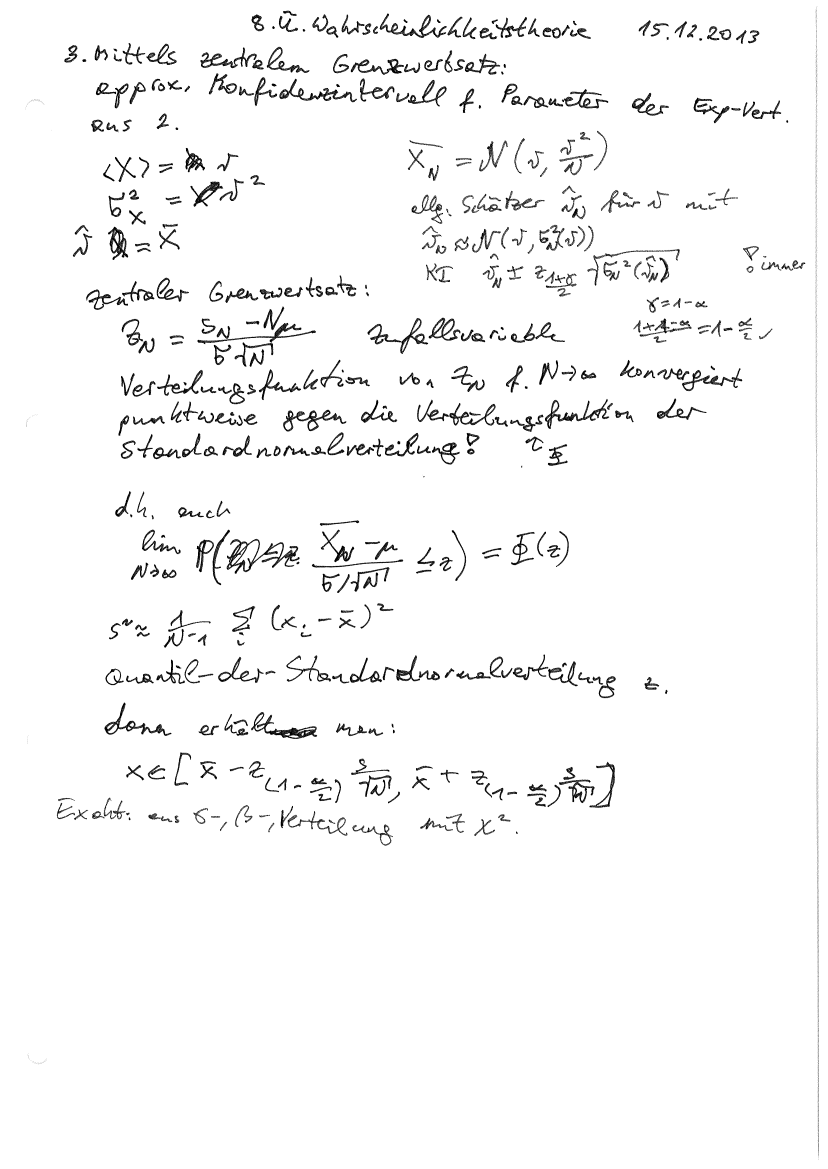 8. Ü. Wahrscheinlichkeitstheorie 15.12.2013
3. Mittels zentralem Grenzwertsatz:
approx. Konfidenzintervall f. Parameter der Exp-Vert.
aus 2.
⟨X⟩ = ϑ
σ²_X = ϑ²
ϑ̂ = X̄
X̄_N = N(ϑ, ϑ²/N)
allg. Schätzer ϑ̂_N für ϑ mit
ϑ̂_N ≈ N(ϑ, σ_N²(ϑ))
KI ϑ̂_N ± z_{(1+γ)/2} √(σ_N²(ϑ̂_N)) ! immer
γ = 1-α
(1+1-α)/2 = 1-α/2 ✓
Zentraler Grenzwertsatz:
Z_N = (S_N - Nμ)/(σ√N) Zufallsvariable
Verteilungsfunktion von Z_N f. N→∞ konvergiert
punktweise gegen die Verteilungsfunktion der
Standardnormalverteilung!
Φ
d.h. auch
lim N→∞ P( (X̄_N - μ)/(σ/√N) ≤ z) = Φ(z)
s² ≈ 1/(N-1) Σ_i (x_i - x̄)²
Quantil-der-Standardnormalverteilung z.
dann erhält man:
x ∈ [x̄ - z_(1-α/2) s/√N, x̄ + z_(1-α/2) s/√N]
Exakt: aus γ-, β-, Verteilung mit χ².